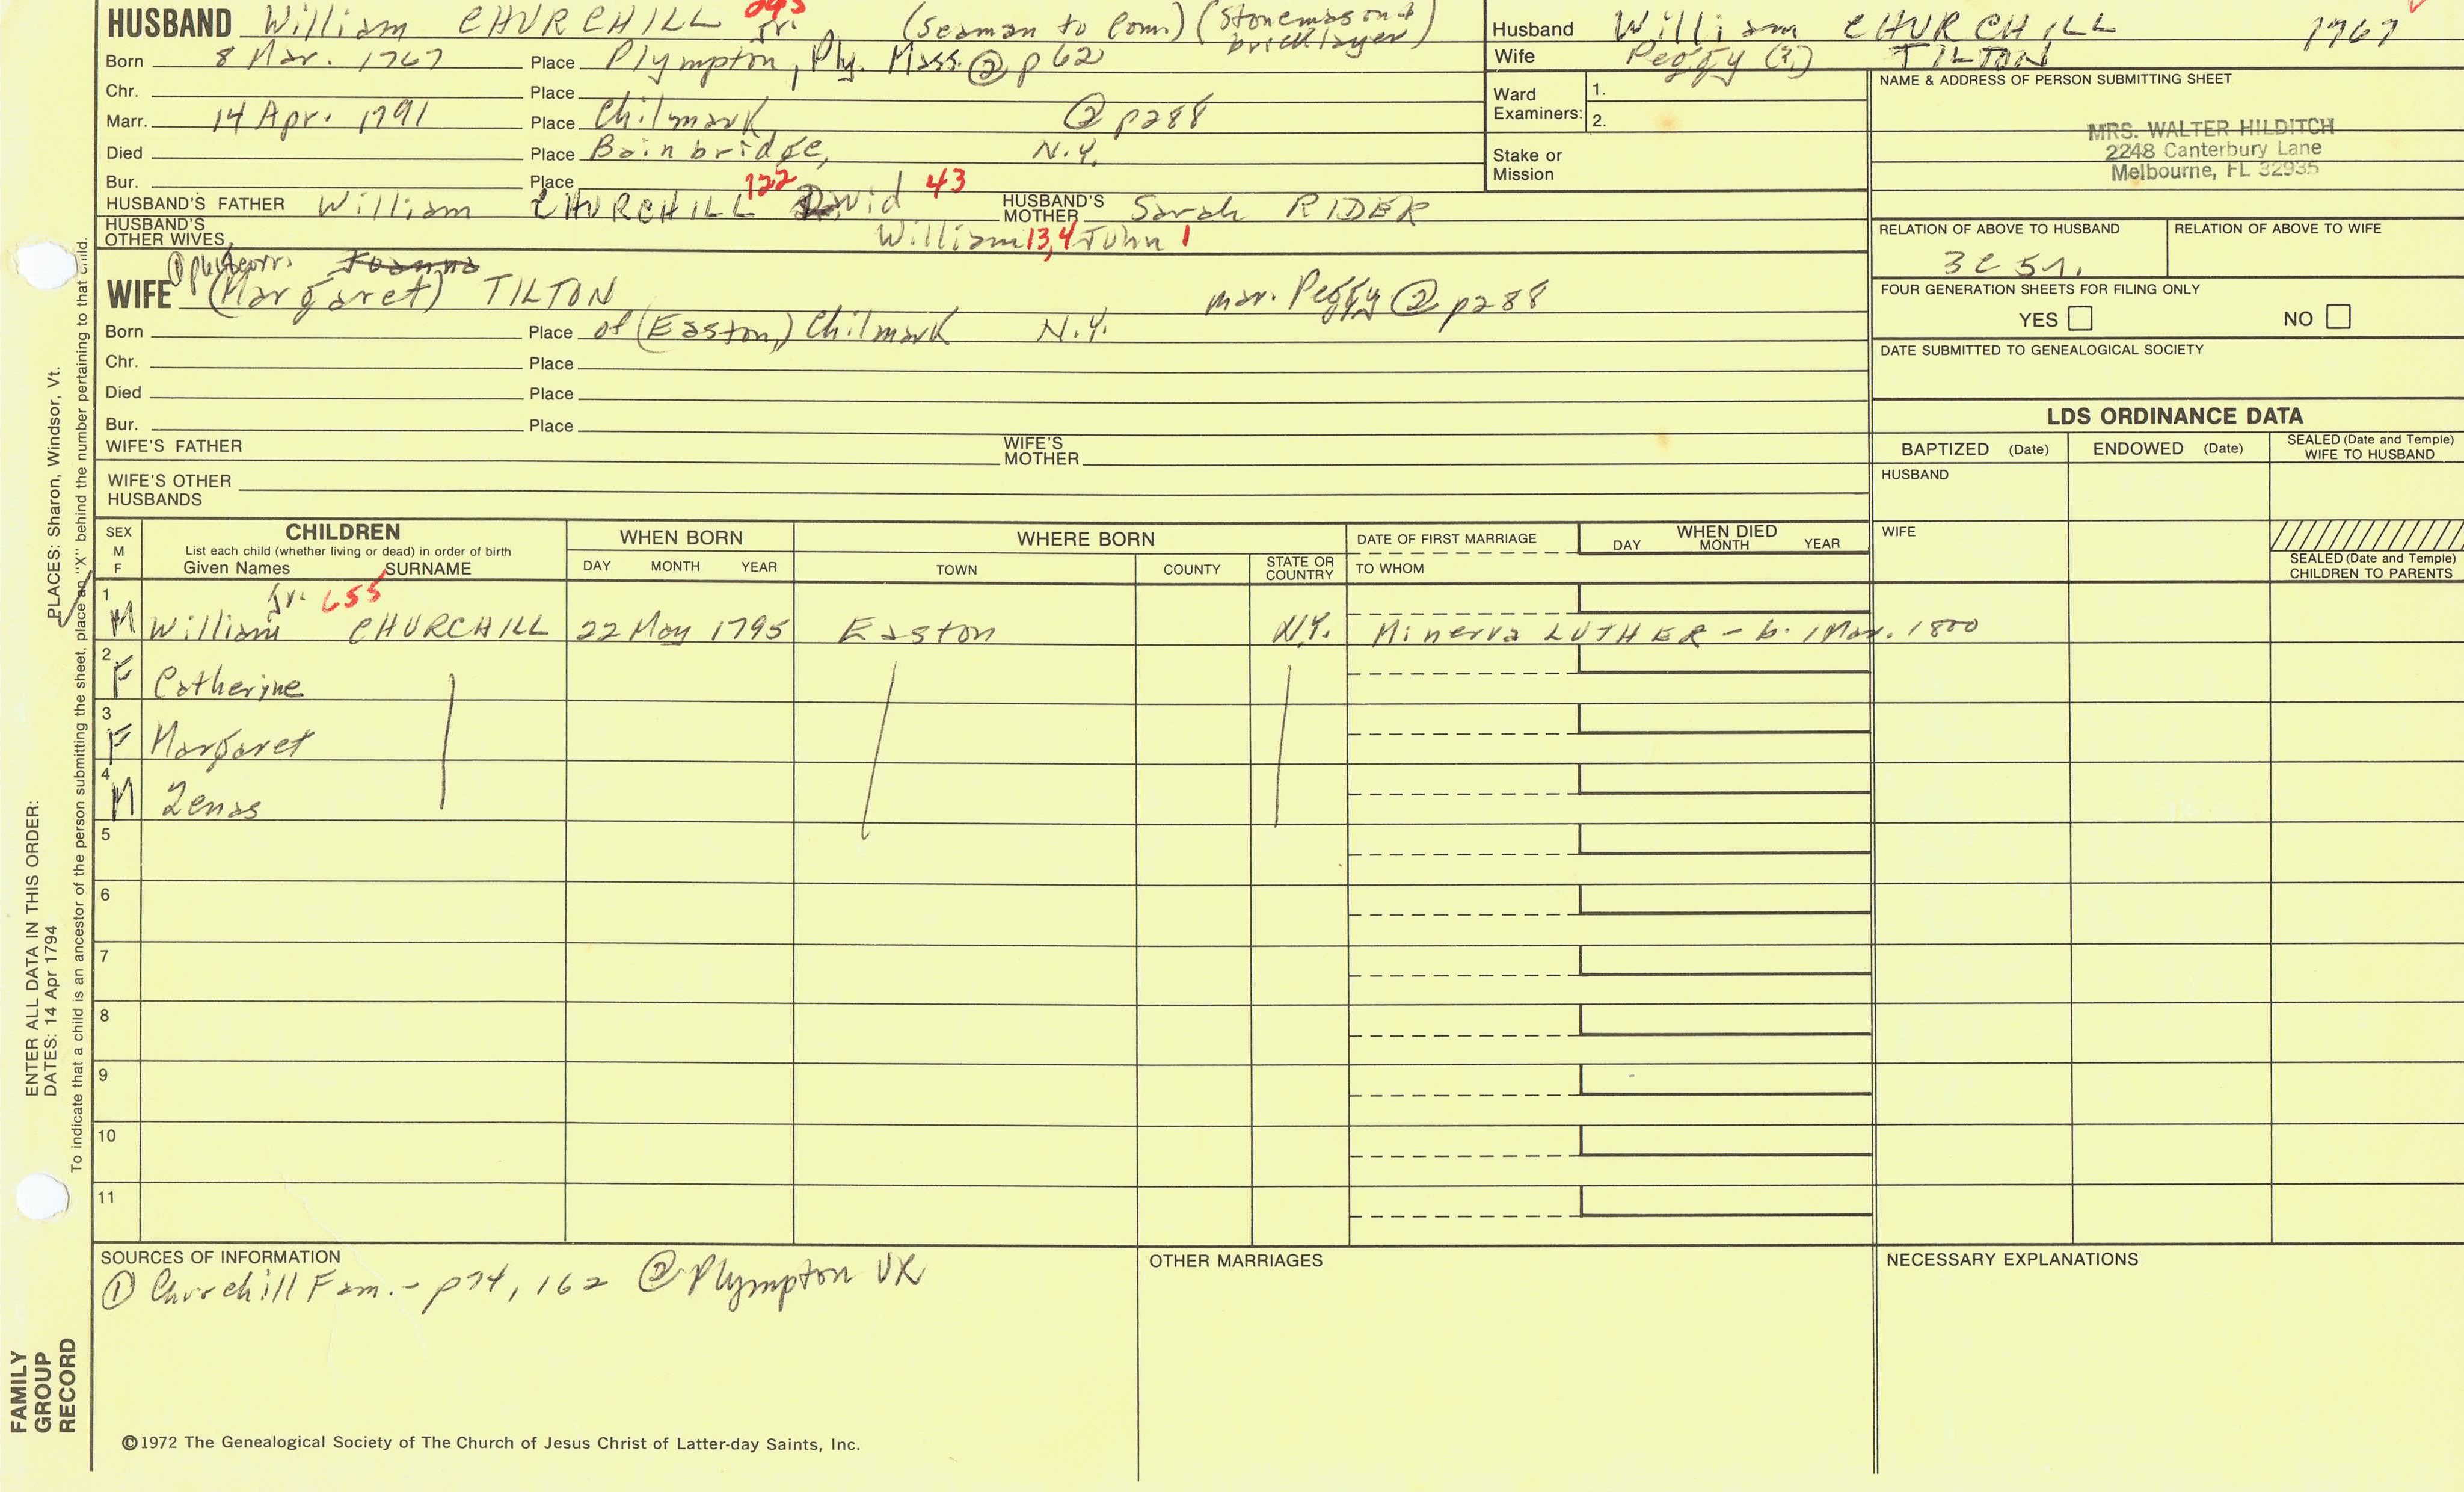 HUSBAND William CHURCHILL Jr. (Seaman to Conn.) (Stonemason & bricklayer)
Born 8 Mar. 1767 Place Plympton, Ply. Mass. @ p 62
Chr. Place
Marr. 14 Apr. 1791 Place Chilmark @ p288
Died Place Bainbridge, N.Y.
Bur. Place
HUSBAND'S FATHER William CHURCHILL 122 David 43 HUSBAND'S MOTHER Sarah RIDER
HUSBAND'S OTHER WIVES William 13,4 John 1
Husband William CHURCHILL 1767
Wife Peggy (?) TILTON
Ward Examiners: 1.
2.
Stake or Mission
NAME & ADDRESS OF PERSON SUBMITTING SHEET
MRS. WALTER HILDITCH
2248 Canterbury Lane
Melbourne, FL 32935
RELATION OF ABOVE TO HUSBAND RELATION OF ABOVE TO WIFE
3C 5r.
FOUR GENERATION SHEETS FOR FILING ONLY
YES NO
DATE SUBMITTED TO GENEALOGICAL SOCIETY
Joanna
WIFE (Margaret) TILTON mar. Peggy @ p288
Born Place of (Easton,) Chilmark N.Y.
Chr. Place
Died Place
Bur. Place
WIFE'S FATHER WIFE'S MOTHER
WIFE'S OTHER HUSBANDS
LDS ORDINANCE DATA
BAPTIZED (Date) ENDOWED (Date) SEALED (Date and Temple) WIFE TO HUSBAND
HUSBAND
WIFE
SEALED (Date and Temple) CHILDREN TO PARENTS
SEX M F
CHILDREN
List each child (whether living or dead) in order of birth
Given Names SURNAME
WHEN BORN
DAY MONTH YEAR
WHERE BORN
TOWN COUNTY STATE OR COUNTRY
DATE OF FIRST MARRIAGE
TO WHOM
WHEN DIED
DAY MONTH YEAR
1 Jr. 655
M William CHURCHILL 22 May 1795 Easton N.Y. Minerva LUTHER - b. 1 Mar. 1800
2 F Catherine
3 F Margaret
4 M Zenas
5
6
7
8
9
10
11
SOURCES OF INFORMATION
① Churchill Fam. - p74, 162 @ Plympton VR
OTHER MARRIAGES
NECESSARY EXPLANATIONS
©1972 The Genealogical Society of The Church of Jesus Christ of Latter-day Saints, Inc.
FAMILY GROUP RECORD
ENTER ALL DATA IN THIS ORDER:
DATES: 14 Apr 1794
PLACES: Sharon, Windsor, Vt.
To indicate that a child is an ancestor of the person submitting the sheet, place an "X" behind the number pertaining to that child.